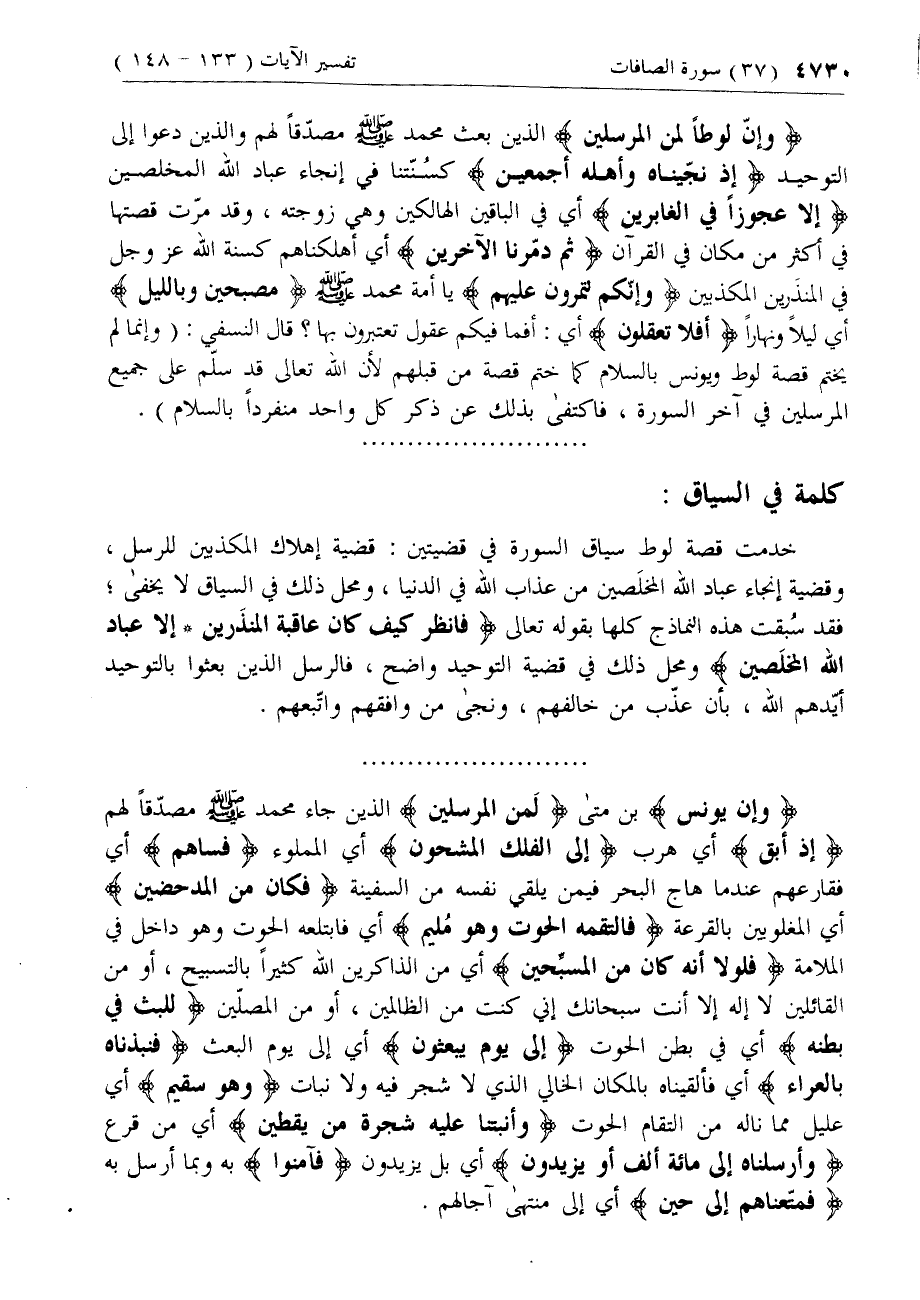 ٤٧٣٠ (٣٧) سورة الصافات تفسير الآيات ( ١٣٣ - ١٤٨ )
﴿ وإنّ لوطاً لمن المرسلين ﴾ الذين بعث محمد ﷺ مصدّقاً لهم والذين دعوا إلى
التوحيد ﴿ إذ نجّيناه وأهله أجمعين ﴾ كسُنّتنا في إنجاء عباد الله المخلصين
﴿ إلا عجوزاً في الغابرين ﴾ أي في الباقين الهالكين وهي زوجته ، وقد مرّت قصتها
في أكثر من مكان في القرآن ﴿ ثم دمّرنا الآخرين ﴾ أي أهلكناهم كسنة الله عز وجل
في المنذَرين المكذبين ﴿ وإنّكم لتمرون عليهم ﴾ يا أمة محمد ﷺ ﴿ مصبحين وبالليل ﴾
أي ليلاً ونهاراً ﴿ أفلا تعقلون ﴾ أي : أفما فيكم عقول تعتبرون بها ؟ قال النسفي : ( وإنما لم
يختم قصة لوط ويونس بالسلام كما ختم قصة من قبلهم لأن الله تعالى قد سلّم على جميع
المرسلين في آخر السورة ، فاكتفىٰ بذلك عن ذكر كل واحد منفرداً بالسلام ) .
.........................
كلمة في السياق :
خدمت قصة لوط سياق السورة في قضيتين : قضية إهلاك المكذبين للرسل ،
وقضية إنجاء عباد الله المخلَصين من عذاب الله في الدنيا ، ومحل ذلك في السياق لا يخفىٰ ؛
فقد سُبقت هذه النماذج كلها بقوله تعالى ﴿ فانظر كيف كان عاقبة المنذَرين * إلا عباد
الله المخلَصين ﴾ ومحل ذلك في قضية التوحيد واضح ، فالرسل الذين بعثوا بالتوحيد
أيّدهم الله ، بأن عذّب من خالفهم ، ونجىٰ من وافقهم واتّبعهم .
.........................
﴿ وإن يونس ﴾ بن متىٰ ﴿ لَمن المرسلين ﴾ الذين جاء محمد ﷺ مصدّقاً لهم
﴿ إذ أبق ﴾ أي هرب ﴿ إلى الفلك المشحون ﴾ أي المملوء ﴿ فساهم ﴾ أي
فقارعهم عندما هاج البحر فيمن يلقي نفسه من السفينة ﴿ فكان من المدحضين ﴾
أي المغلوبين بالقرعة ﴿ فالتقمه الحوت وهو مُليم ﴾ أي فابتلعه الحوت وهو داخل في
الملامة ﴿ فلولا أنه كان من المسبِّحين ﴾ أي من الذاكرين الله كثيراً بالتسبيح ، أو من
القائلين لا إله إلا أنت سبحانك إني كنت من الظالمين ، أو من المصلّين ﴿ للبث في
بطنه ﴾ أي في بطن الحوت ﴿ إلى يوم يبعثون ﴾ أي إلى يوم البعث ﴿ فنبذناه
بالعراء ﴾ أي فألقيناه بالمكان الخالي الذي لا شجر فيه ولا نبات ﴿ وهو سقيم ﴾ أي
عليل مما ناله من التقام الحوت ﴿ وأنبتنا عليه شجرة من يقطين ﴾ أي من قرع
﴿ وأرسلناه إلى مائة ألف أو يزيدون ﴾ أي بل يزيدون ﴿ فآمنوا ﴾ به وبما أرسل به
﴿ فمتّعناهم إلى حين ﴾ أي إلى منتهىٰ آجالهم .